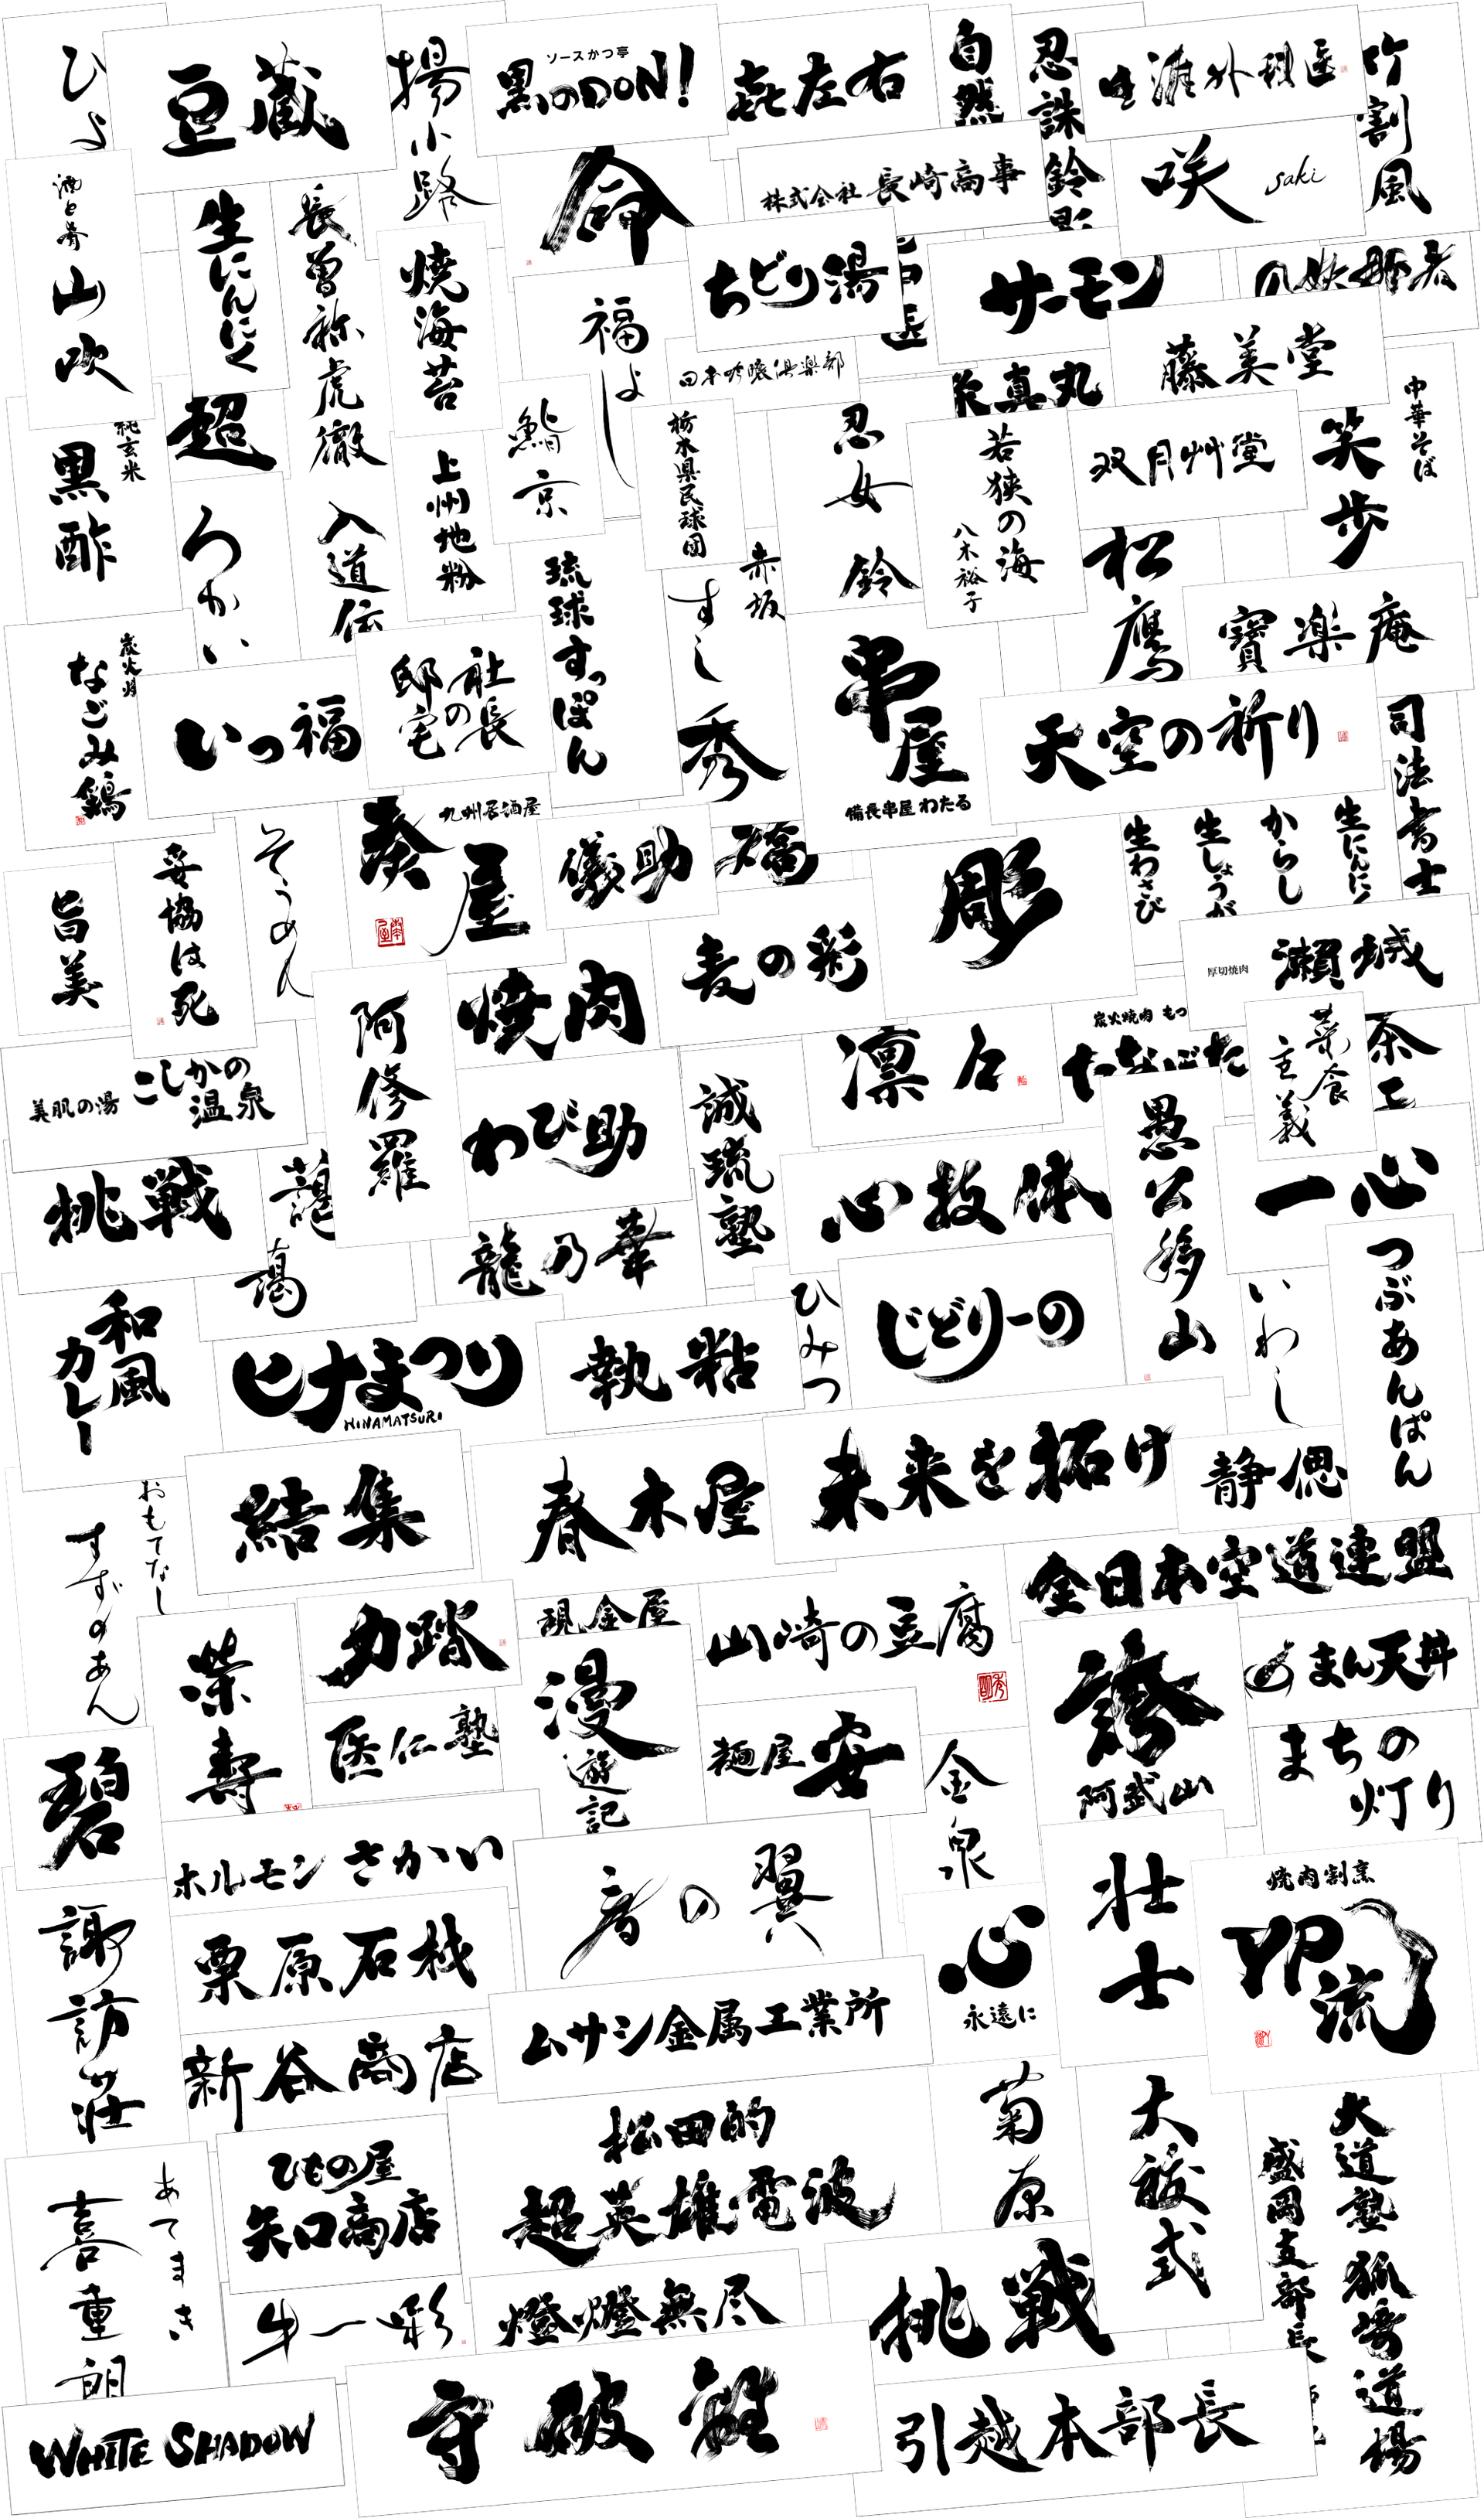 ひよ
豆蔵
揚小路
ソースかつ亭
黒のDON!
㐂左右
自然
忍誅鈴彫
竹割風
酒と肴
山吹
生にんにく
長曽祢虎徹
入道伝
焼海苔
命
株式会社 長崎商事
咲 saki
ちどり湯
サーモン
藤美堂
福よし
日本吟醸倶楽部
真丸
中華そば
笑歩
純玄米
黒酢
超
鮨京
栃木県民球団
忍女 鈴
若狭の海
八木裕子
双月艸堂
上州地粉
松鷹
寶楽庵
赤坂
すし秀
琉球すっぽん
炭火焼
なごみ鶏
いっ福
社長の邸宅
串屋
備長串屋 わたる
天空の祈り
司法書士
九州居酒屋
奏屋
儀助
彫
生わさび
生しょうが
からし
生にんにく
旨美
妥協は死
そうめん
麦の彩
厚切焼肉
瀬城
阿修羅
焼肉
凛々
炭火焼肉 もつ
菜食主義
美肌の湯
こしかの温泉
わび助
誠琉塾
愚公移山
挑戦
心技体
一心
龍乃華
つぶあんぱん
和風カレー
ヒナまつり
HINAMATSURI
執粘
ひみつ
じどりーの
いわし
結集
春木屋
未来を拓け
静偲
おもてなし
すずのあん
全日本空道連盟
力踏
現金屋
山崎の豆腐
誇
阿武山
うまん天丼
栄寿
医仁塾
漫遊記
麺屋 安
金泉
まちの灯り
碧
ホルモン さかい
音の翼
壮士
焼肉割烹
叩流
諏訪荘
栗原石材
心
永遠に
ムサシ金属工業所
新谷商店
菊原
大祓式
大道塾 狐崎道場
盛岡支部長
ひもの屋
矢口商店
松田的
超英雄電波
あてまき
喜重朗
牛一彩
燈燈無尽
挑戦
WHITE SHADOW
守破離
引越本部長